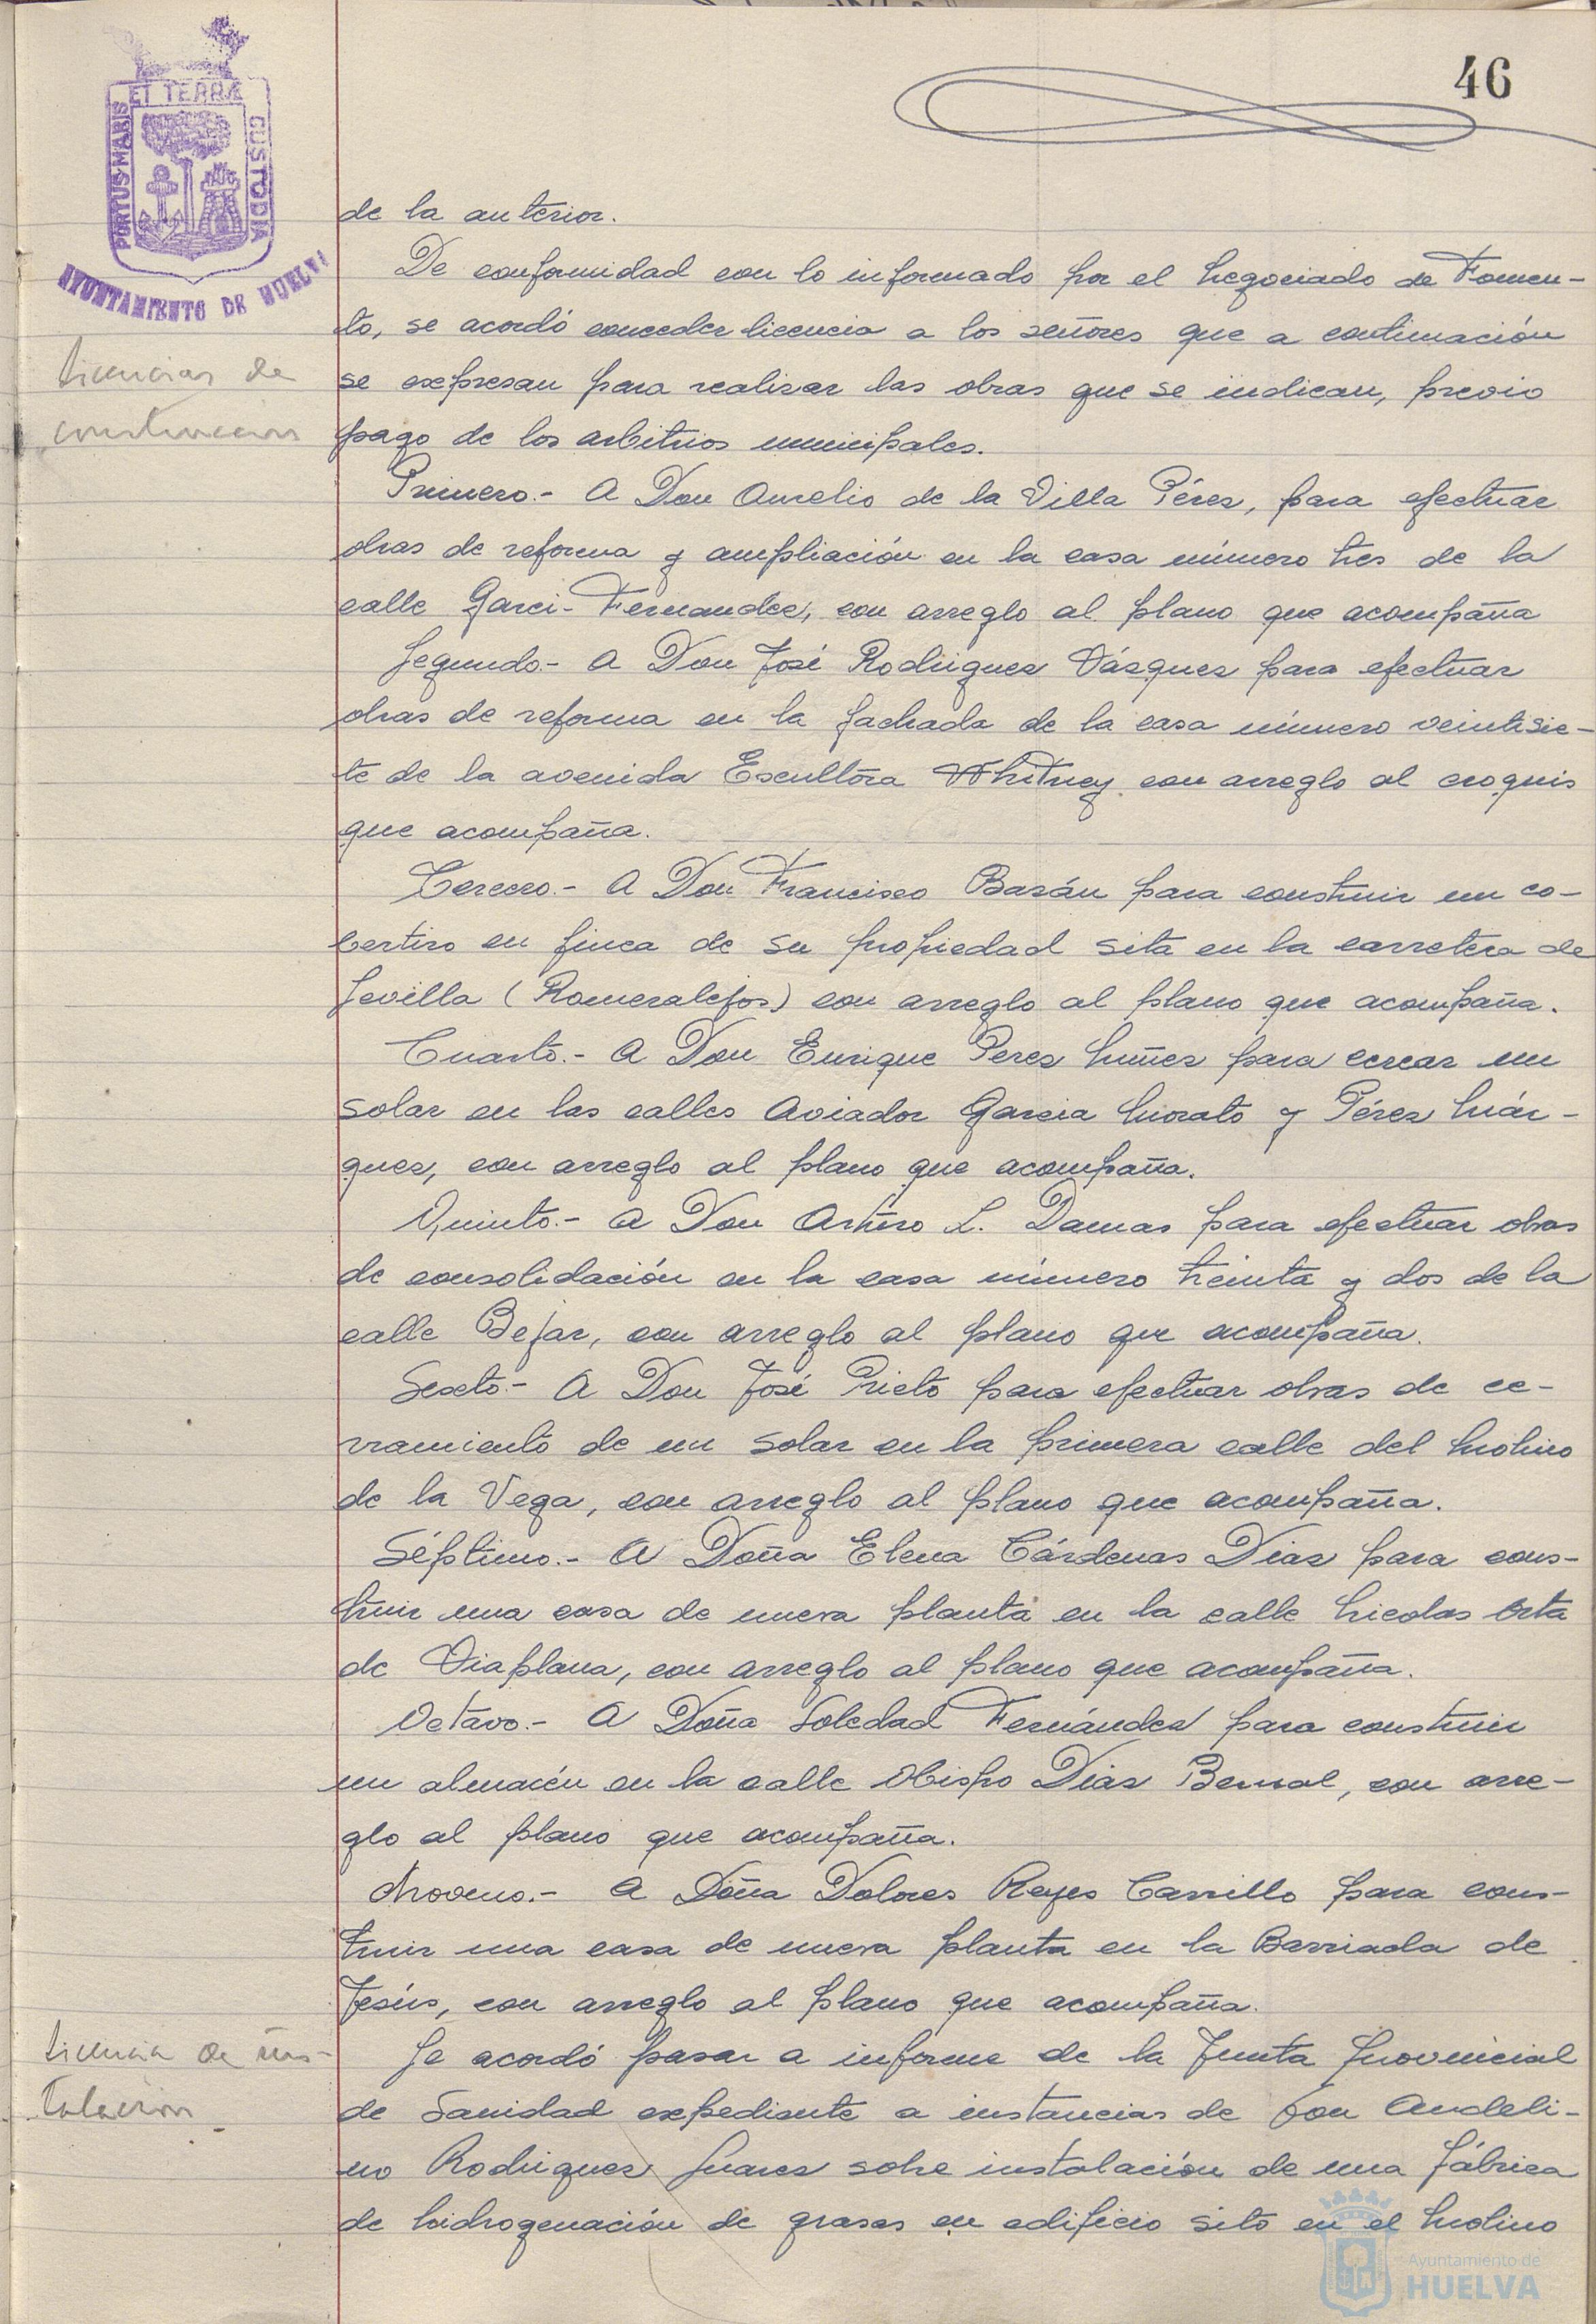 46
ET TERRÆ
PORTUS MARIS
CUSTODIA
AYUNTAMIENTO DE HUELVA
de la anterior.
De conformidad con lo informado por el Negociado de Fomen-
to, se acordó conceder licencia a los señores que a continuación
Licencias de
se expresan para realizar las obras que se indican, previo
construccion
pago de los arbitrios municipales.
Primero.- A Don Aurelio de la Villa Pérez, para efectuar
obras de reforma y ampliación en la casa número tres de la
calle Garci-Fernandez, con arreglo al plano que acompaña
Segundo.- A Don José Rodriguez Vásquez para efectuar
obras de reforma en la fachada de la casa número veintisie-
te de la avenida Escultora Whitney con arreglo al croquis
que acompaña.
Tercero.- A Don Francisco Bazán para construir un co-
bertizo en finca de su propiedad sita en la carretera de
Sevilla (Romeralejos) con arreglo al plano que acompaña.
Cuarto.- A Don Enrique Perez Nuñez para cercar un
solar en las calles Aviador Garcia Morato y Pérez Már-
quez, con arreglo al plano que acompaña.
Quinto.- A Don Arturo L. Damas para efectuar obras
de consolidación en la casa número treinta y dos de la
calle Bejar, con arreglo al plano que acompaña.
Sexto.- A Don José Prieto para efectuar obras de ce-
rramiento de un solar en la primera calle del Molino
de la Vega, con arreglo al plano que acompaña.
Séptimo.- A Doña Elena Cárdenas Diaz para cons-
truir una casa de nueva planta en la calle Nicolas Orta
de Viaplana, con arreglo al plano que acompaña.
Octavo.- A Doña Soledad Fernández para construir
un almacén en la calle Obispo Diaz Bernal, con arre-
glo al plano que acompaña.
Noveno.- A Doña Dolores Reyes Carrillo para cons-
truir una casa de nueva planta en la Barriada de
Jesús, con arreglo al plano que acompaña.
Licencia de ins-
Se acordó pasar a informe de la Junta Provincial
talacion
de Sanidad expediente a instancias de Don Andeli-
no Rodriguez Suarez sobre instalación de una fábrica
de hidrogenación de grasas en edificio sito en el Molino
Ayuntamiento de
HUELVA